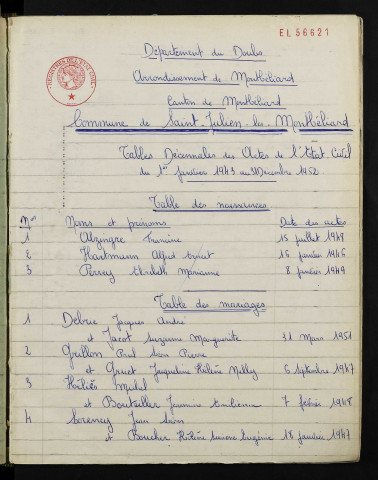 EL 56621
Département du Doubs
Arrondissement de Montbéliard
Canton de Montbéliard
Commune de Saint-Julien-les-Montbéliard
Tables Décennales des Actes de l'État Civil
du 1er janvier 1943 au 31 Décembre 1952
Table des naissances
Nos Noms et prénoms Date des actes
1 Abzingre Francine 15 juillet 1948
2 Hartmann Alfred 15 janvier 1946
3 Perrey Marianne 8 janvier 1949
Table des mariages
1 Debrie Jacques André
et Jacot Suzanne Marguerite 31 Mars 1951
2 Grillon Paul Léon Pierre
et Gruet Jacqueline Hélène Nelly 6 Septembre 1947
3 Héliès Michel
et Bouteiller Jeannine Emilienne 7 février 1948
4 Sereney Jean Léon
et Boucher Hélène Simone Eugénie 18 janvier 1947